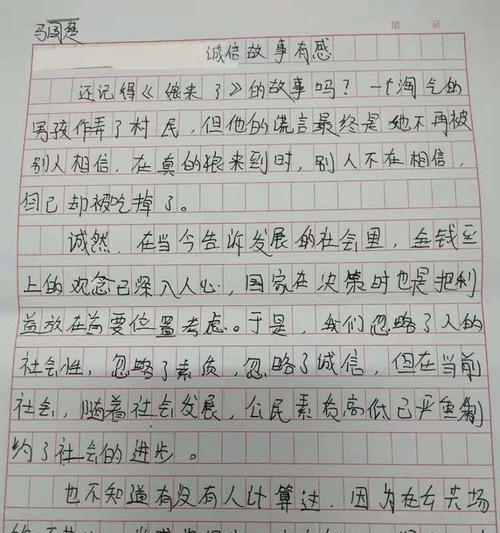 第 页
诚信故事有感
还记得《狼来了》的故事吗？一个淘气的
男孩作弄了村民，但他的谎言最终是她不再被
别人相信，在真的狼来到时，别人不在相信，
自己却被吃掉了。
诚然，在当今告诉发展的社会里，金钱至
上的观念已深入人心，国家在决策时也是把利
益放在首要位置考虑。于是，我们忽略了人的
社会性，忽略了素质，忽略了诚信，但在当前
社会，随着社会发展，公民素质高低已严重制
约了社会的进步。
也不知道有没有人计算过，因为在公共场